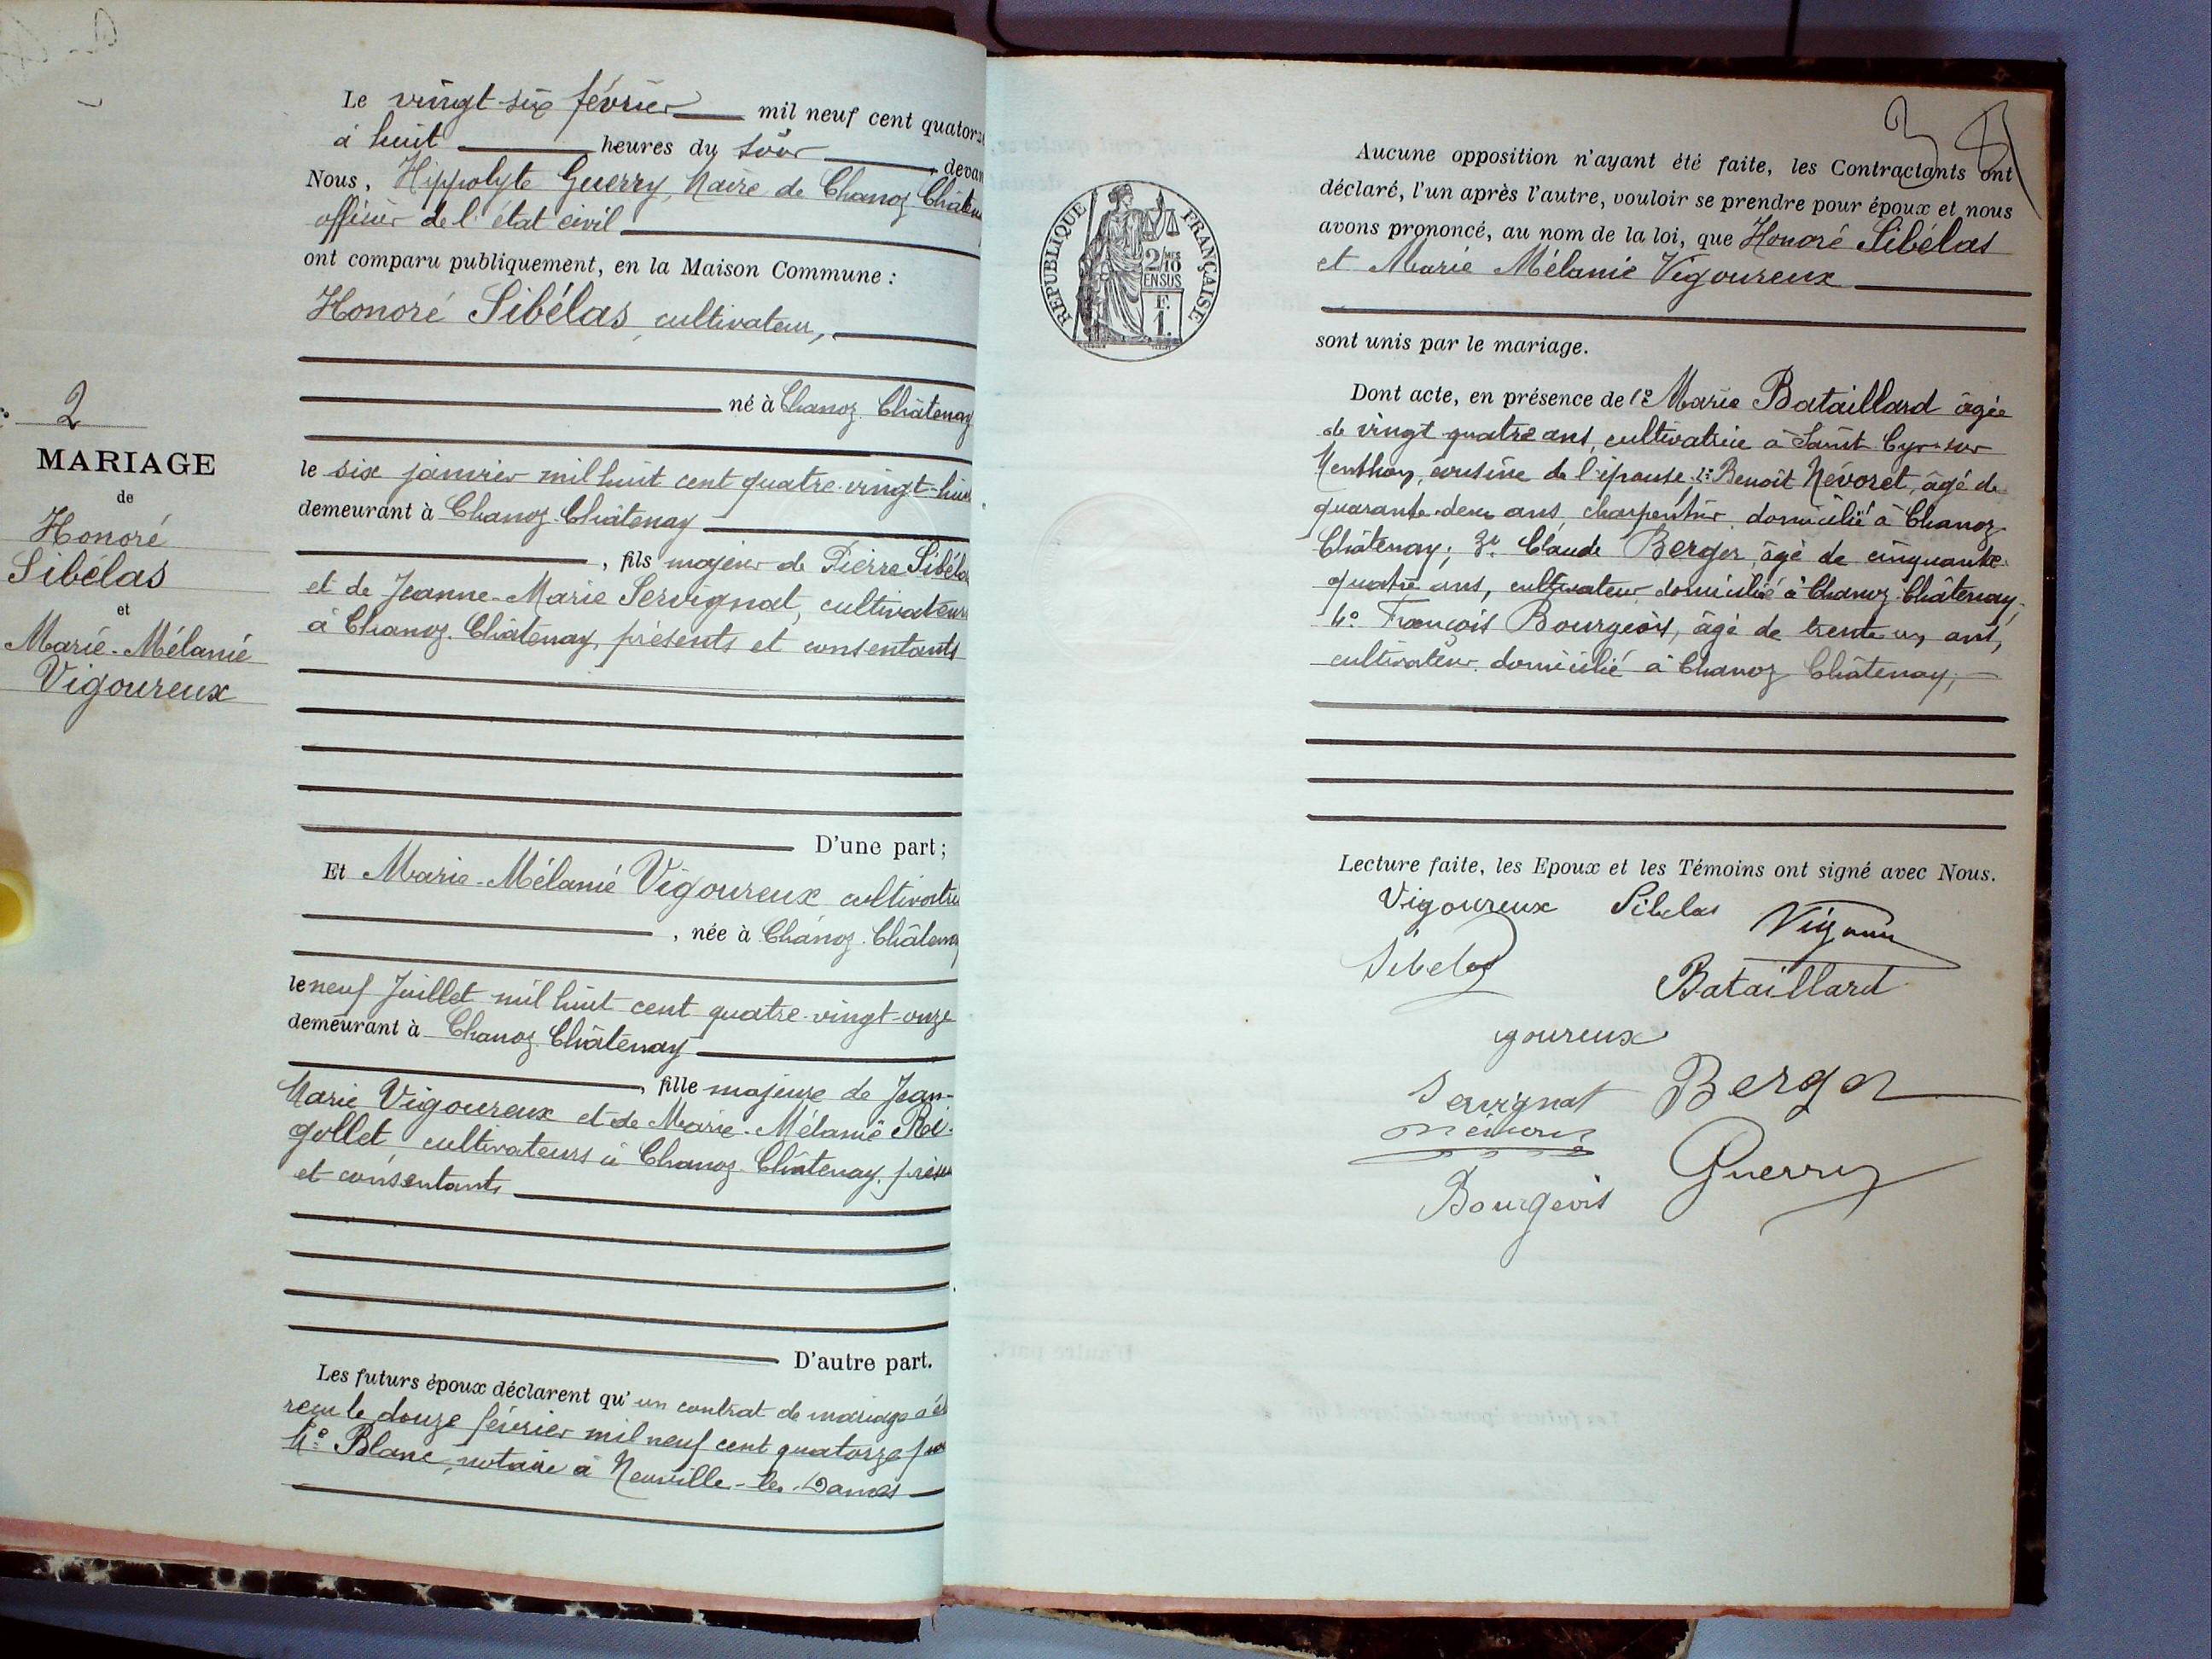 2
MARIAGE
de
Honoré
Sibélas
et
Marie-Mélanie
Vigoureux
Le vingt-six février mil neuf cent quatorze
à huit heures du soir devan
Nous, Hippolyte Guerry, Maire de Chanoz Châten
officier de l'état civil
ont comparu publiquement, en la Maison Commune :
Honoré Sibélas, cultivateur,
né à Chanoz-Châtenay
le six janvier mil huit cent quatre-vingt-huit
demeurant à Chanoz-Châtenay
, fils majeur de Pierre Sibélas
et de Jeanne-Marie Servignat, cultivateurs
à Chanoz-Châtenay, présents et consentants
D'une part ;
Et Marie-Mélanie Vigoureux cultivatri
, née à Chanoz-Châtenay
le neuf Juillet mil huit cent quatre-vingt-onze
demeurant à Chanoz-Châtenay
, fille majeure de Jean-
Marie Vigoureux et de Marie-Mélanie Ri-
gollet, cultivateurs à Chanoz-Châtenay, prése
et consentants
D'autre part.
Les futurs époux déclarent qu'un contrat de mariage a ét
reçu le douze février mil neuf cent quatorze par
Me Blanc, notaire à Neuville-les-Dames
3
RÉPUBLIQUE FRANÇAISE
2/10 MES
EN SUS
F.
1.
Aucune opposition n'ayant été faite, les Contractants ont
déclaré, l'un après l'autre, vouloir se prendre pour époux et nous
avons prononcé, au nom de la loi, que Honoré Sibélas
et Marie Mélanie Vigoureux
sont unis par le mariage.
Dont acte, en présence de 1º Marie Bataillard âgée
de vingt quatre ans, cultivatrice à Saint-Cyr-sur
Menthon, cousine de l'épouse; 2º Benoît Névoret, âgé de
quarante-deux ans, charpentier, domicilié à Chanoz-
Châtenay; 3º Claude Berger, âgé de cinquante-
quatre ans, cultivateur domicilié à Chanoz-Châtenay;
4º François Bourgeois, âgé de trente un ans,
cultivateur domicilié à Chanoz Châtenay;
Lecture faite, les Epoux et les Témoins ont signé avec Nous.
Vigoureux Sibelas
Sibelas
Bataillard
igoureux
Servignat Berger
Guerry
Bourgeois